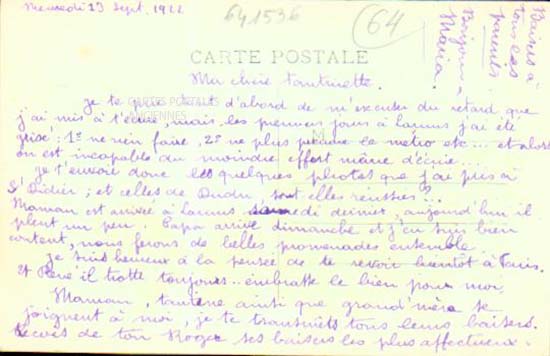 Mercredi 13 Sept. 1922
641536
64
Baisers à
tous ces
parents
Bonjour à
Maria.
CARTE POSTALE
Ma chère tantinette.
CARTES POSTALES
ANCIENNES
je te prie tout d'abord de m'excuser du retard que
j'ai mis à t'écrire, mais les premiers jours à Lannus j'ai été
grisé; 1º ne rien faire, 2º ne plus prendre le métro etc... et alors
on est incapable du moindre effort même d'écrire...
je t'envoie donc les quelques photos que j'ai pris à
St Didier; et celles de Dudu, sont elles réussies?..
Maman est arrivée à Lannus samedi dernier, aujourd'hui il
pleut un peu. Papa arrive dimanche et j'en suis bien
content, nous ferons de belles promenades ensemble.
je suis heureux à la pensée de te revoir bientôt à Paris.
Et René il trotte toujours... embrasse le bien pour moi.
Maman, tantene ainsi que grand'mère se
joignent à moi, je te transmets tous leurs baisers.
Reçois de ton Roger ses baisers les plus affectueux.